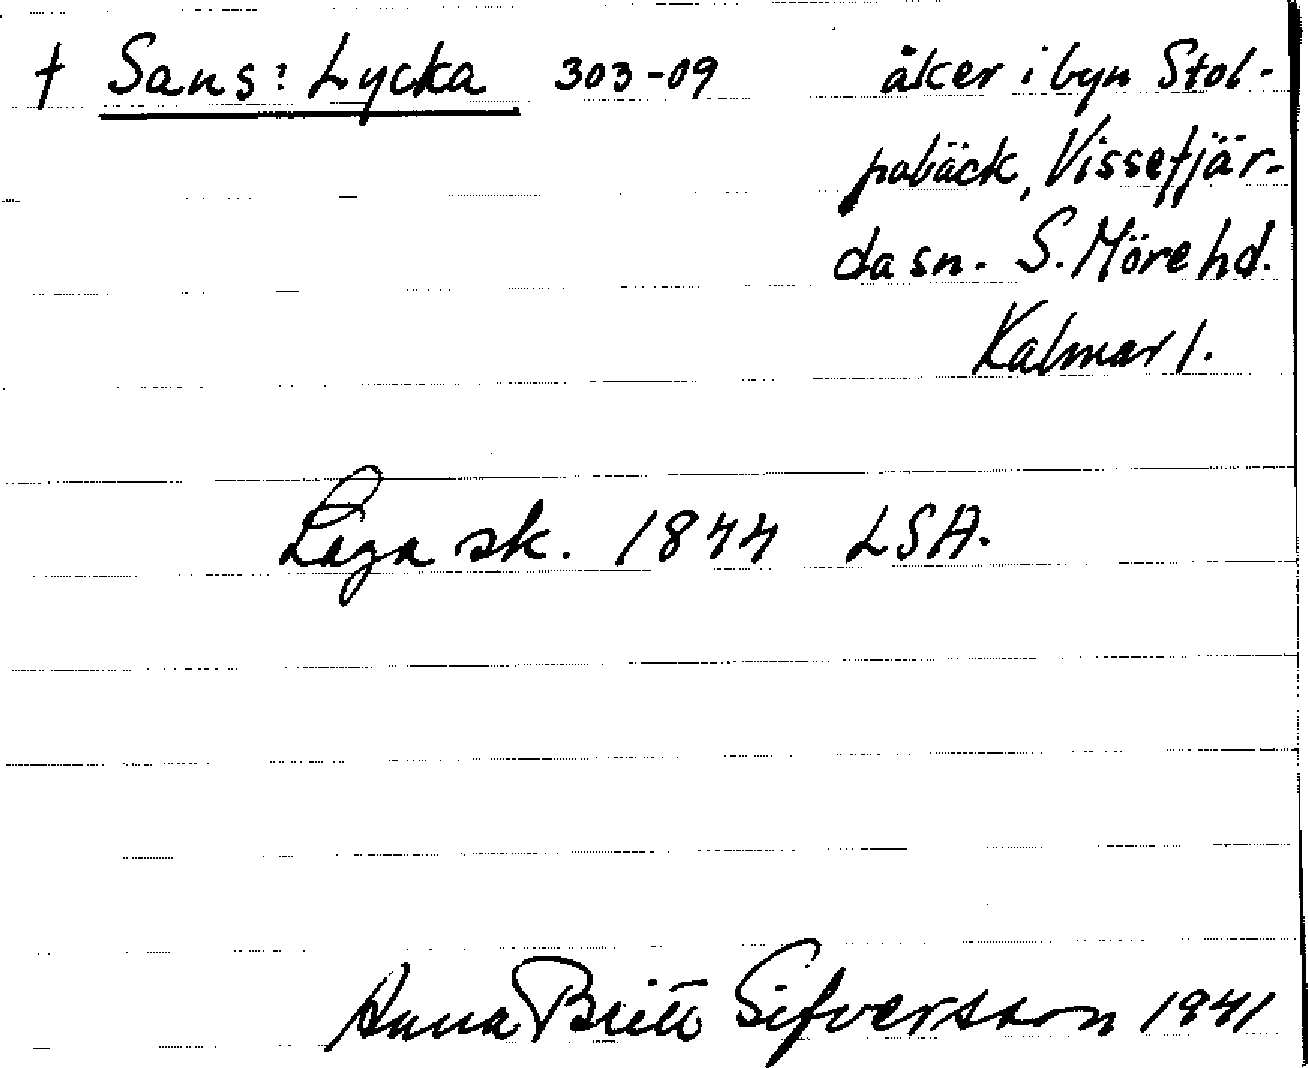 † Sans: Lycka 303-09 åker i byn Stol-
pabäck, Vissefjär-
da sn. S. Möre hd.
Kalmar l.
Laga sk. 1844 LSA.
Anna Britta Sifversson 1941